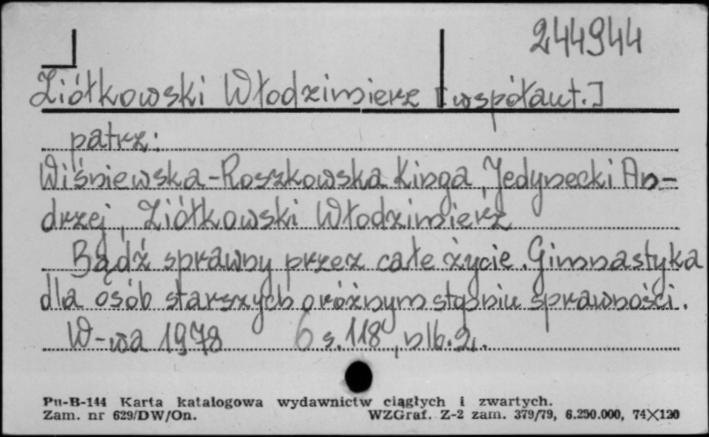 244944
Ziółkowski Włodzimierz [współaut.]
patrz:
Wiśniewska-Roszkowska Kinga, Jedynecki An-
drzej, Ziółkowski Włodzimierz
Bądź sprawny przez całe życie. Gimnastyka
dla osób starszych o różnym stopniu sprawności.
W-wa 1978 6 s. 118, nlb. 2.
Pu-B-144 Karta katalogowa wydawnictw ciągłych i zwartych.
Zam. nr 629/DW/On. WZGraf. Z-2 zam. 379/79, 6.250.000, 74×120